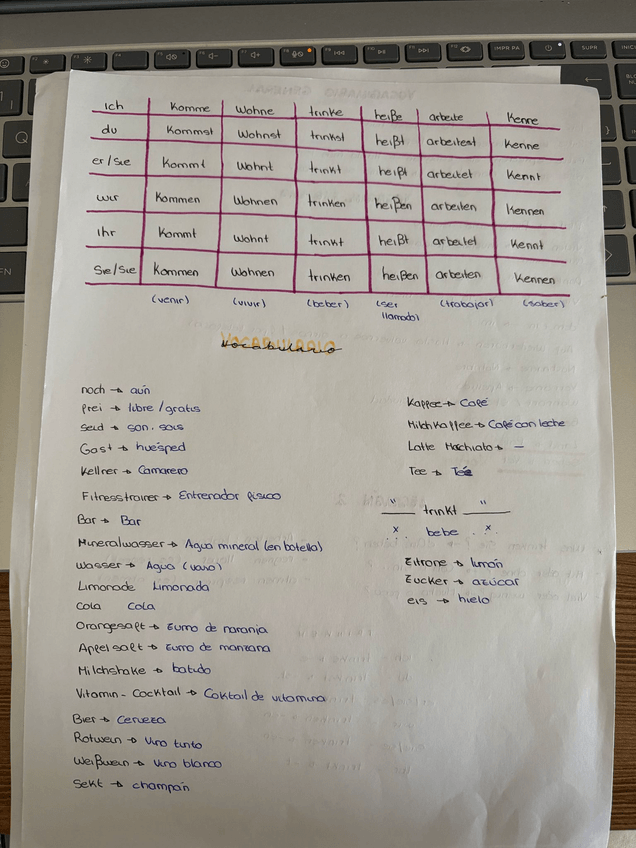 ich Komme Wohne trinke heiße arbeite Kenne
du Kommst Wohnst trinkst heißt arbeitest Kenne
er/Sie Kommt Wohnt trinkt heißt arbeitet Kennt
wir Kommen Wohnen trinken heißen arbeiten Kennen
Ihr Kommt Wohnt trinkt heißt arbeitet Kennt
Sie/Sie Kommen Wohnen trinken heißen arbeiten Kennen
(venir) (vivir) (beber) (ser llamado) (trabajar) (saber)
Vocabulario
noch → aún
frei → libre / gratis
seid → son, sois
Gast → huésped
Kellner → Camarero
Fitnesstrainer → Entrenador físico
Bar → Bar
Mineralwasser → Agua mineral (en botella)
Wasser → Agua (vaso)
Limonade Limonada
Cola Cola
Orangesaft → Zumo de naranja
Apfelsaft → Zumo de manzana
Milchshake → batido
Vitamin-Cocktail → Coktail de vitamina
Bier → Cerveza
Rotwein → Vino tinto
Weißwein → Vino blanco
Sekt → champán
Kaffee → Café
Milchkaffee → Café con leche
Latte Machiato → —
Tee → Té
" trinkt "
x bebe x
Zitrone → limón
Zucker → azúcar
eis → hielo